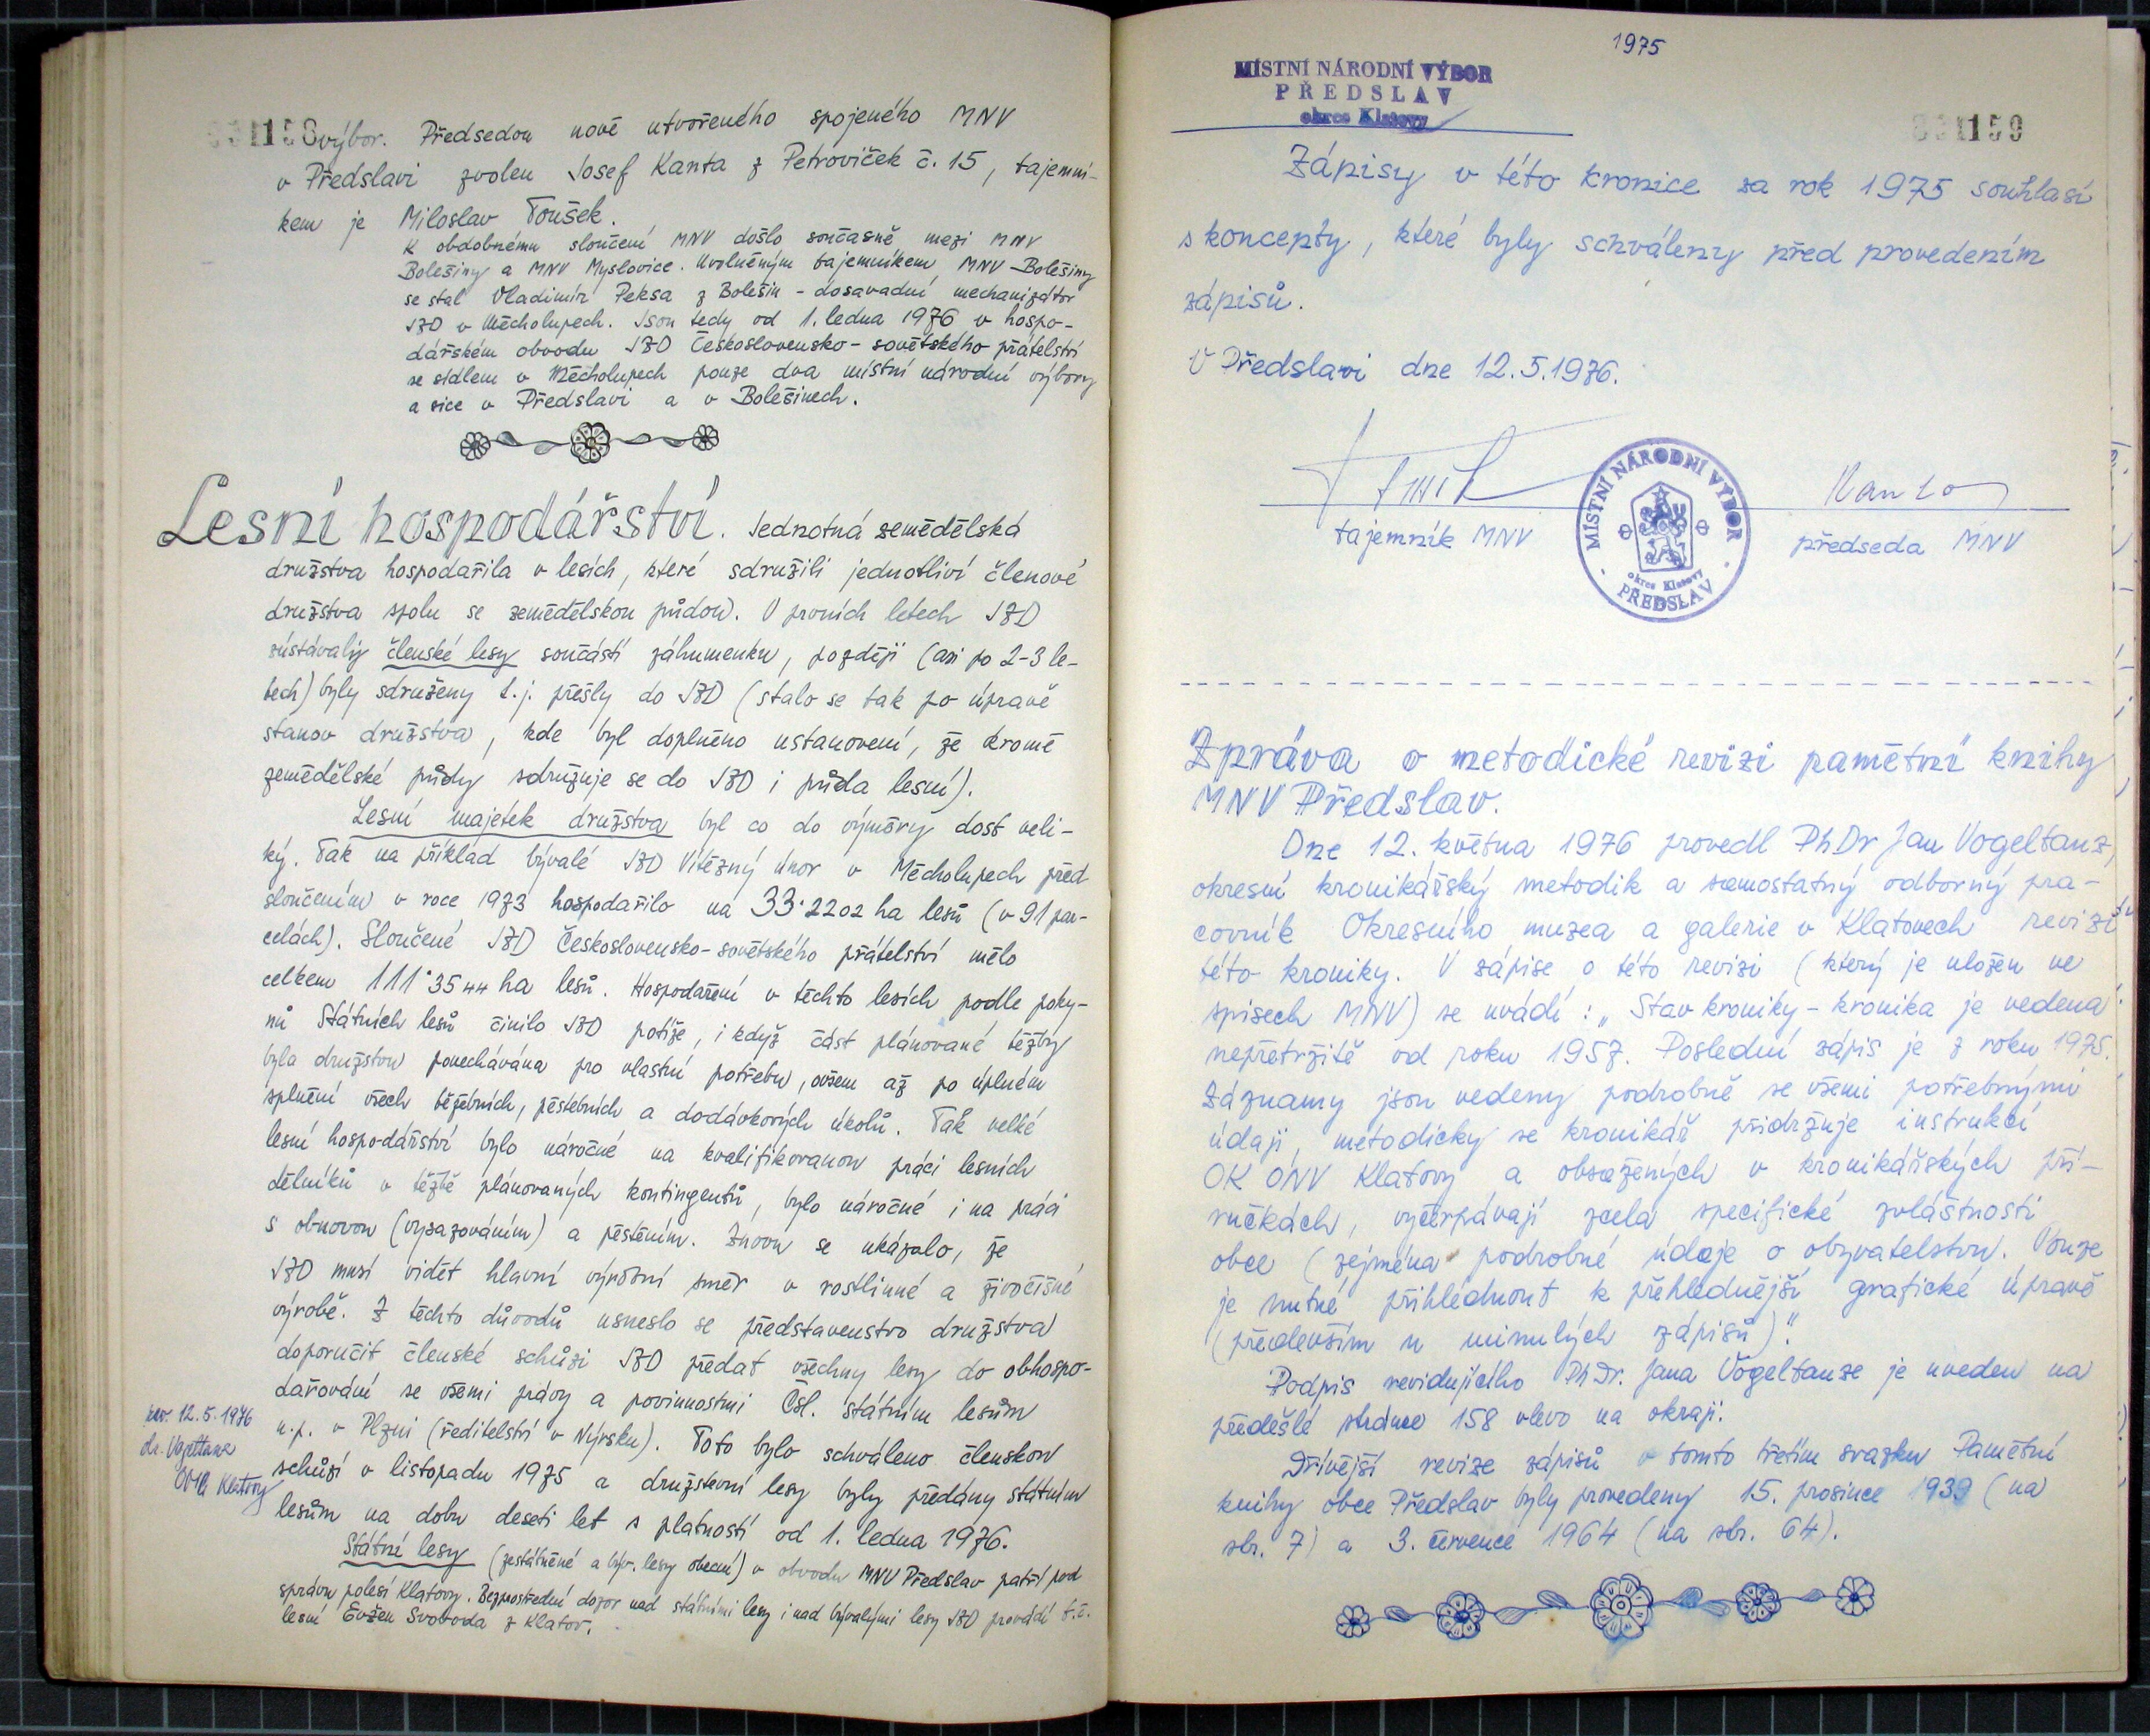 158 výbor. Předsedou nově utvořeného spojeného MNV
v Předslavi zvolen Josef Kanta z Petroviček č. 15, tajemní-
kem je Miloslav Toušek.
K obdobnému sloučení MNV došlo současně mezi MNV
Bolešiny a MNV Myslovice. Uvolněným tajemníkem MNV Bolešiny
se stal Vladimír Peksa z Bolešin - dosavadní mechanizátor
JZD v Měcholupech. Jsou tedy od 1. ledna 1976 v hospo-
dářském obvodu JZD Československo-sovětského přátelství
se sídlem v Měcholupech pouze dva místní národní výbory
a sice v Předslavi a v Bolešinech.
Lesní hospodářství. Jednotná zemědělská
družstva hospodařila v lesích, které sdružili jednotliví členové
družstva spolu se zemědělskou půdou. V prvních letech JZD
zůstávaly členské lesy součástí záhumenku, později (asi po 2-3 le-
tech) byly sdruženy t.j. přešly do JZD (stalo se tak po úpravě
stanov družstva, kde byl doplněno ustanovení, že kromě
zemědělské půdy sdružuje se do JZD i půda lesní).
Lesní majetek družstva byl co do výměry dost veli-
ký. Tak na příklad bývalé JZD Vítězný únor v Měcholupech před
sloučením v roce 1973 hospodařilo na 33·2202 ha lesů (v 91 par-
celách). Sloučené JZD Československo-sovětského přátelství mělo
celkem 111·3544 ha lesů. Hospodaření v těchto lesích podle poky-
nů Státních lesů činilo JZD potíže, i když část plánované těžby
byla družstvu ponechávána pro vlastní potřebu, ovšem až po úplném
splnění všech těžebních, pěstebních a dodávkových úkolů. Tak velké
lesní hospodářství bylo náročné na kvalifikovanou práci lesních
dělníků v těžbě plánovaných kontingentů, bylo náročné i na práci
s obnovou (vysazováním) a pěstěním. Znovu se ukázalo, že
JZD musí vidět hlavní výrobní směr v rostlinné a živočišné
výrobě. Z těchto důvodů usneslo se představenstvo družstva
doporučit členské schůzi JZD předat všechny lesy do obhospo-
dařování se všemi právy a povinnostmi Čsl. státním lesům
n.p. v Plzni (ředitelství v Nýrsku). Toto bylo schváleno členskou
schůzí v listopadu 1975 a družstevní lesy byly předány státním
lesům na dobu deseti let s platností od 1. ledna 1976.
Státní lesy (zestátněné a býv. lesy obecní) v obvodu MNV Předslav patří pod
správu polesí Klatovy. Bezprostřední dozor nad státními lesy i nad bývalými lesy JZD provádí t.č.
lesní Evžen Svoboda z Klatov.
rev. 12.5.1976
dr. Vogeltanz
OMG Klatovy
1975
MÍSTNÍ NÁRODNÍ VÝBOR
PŘEDSLAV
okres Klatovy
159
Zápisy v této kronice za rok 1975 souhlasí
s koncepty, které byly schváleny před provedením
zápisů.
V Předslavi dne 12.5.1976.
Kanta
tajemník MNV
předseda MNV
MÍSTNÍ NÁRODNÍ VÝBOR
okres Klatovy
PŘEDSLAV
Zpráva o metodické revizi pamětní knihy
MNV Předslav.
Dne 12. května 1976 provedl PhDr Jan Vogeltanz,
okresní kronikářský metodik a samostatný odborný pra-
covník Okresního muzea a galerie v Klatovech revizi
této kroniky. V zápise o této revizi (který je uložen ve
spisech MNV) se uvádí: „Stav kroniky - kronika je vedena
nepřetržitě od roku 1957. Poslední zápis je z roku 1975.
Záznamy jsou vedeny podrobně se všemi potřebnými
údaji metodicky se kronikář přidržuje instrukcí
OK ONV Klatovy a obsažených v kronikářských pří-
ručkách, vyčerpávají zcela specifické zvláštnosti
obce (zejména podrobné údaje o obyvatelstvu. Pouze
je nutné přihlédnout k přehlednější grafické úpravě
(především u minulých zápisů)."
Podpis revidujícího PhDr. Jana Vogeltanze je uveden na
předešlé stránce 158 vlevo na okraji.
Dřívější revize zápisů v tomto třetím svazku Pamětní
knihy obce Předslav byly provedeny 15. prosince 1939 (na
str. 7) a 3. července 1964 (na str. 64).